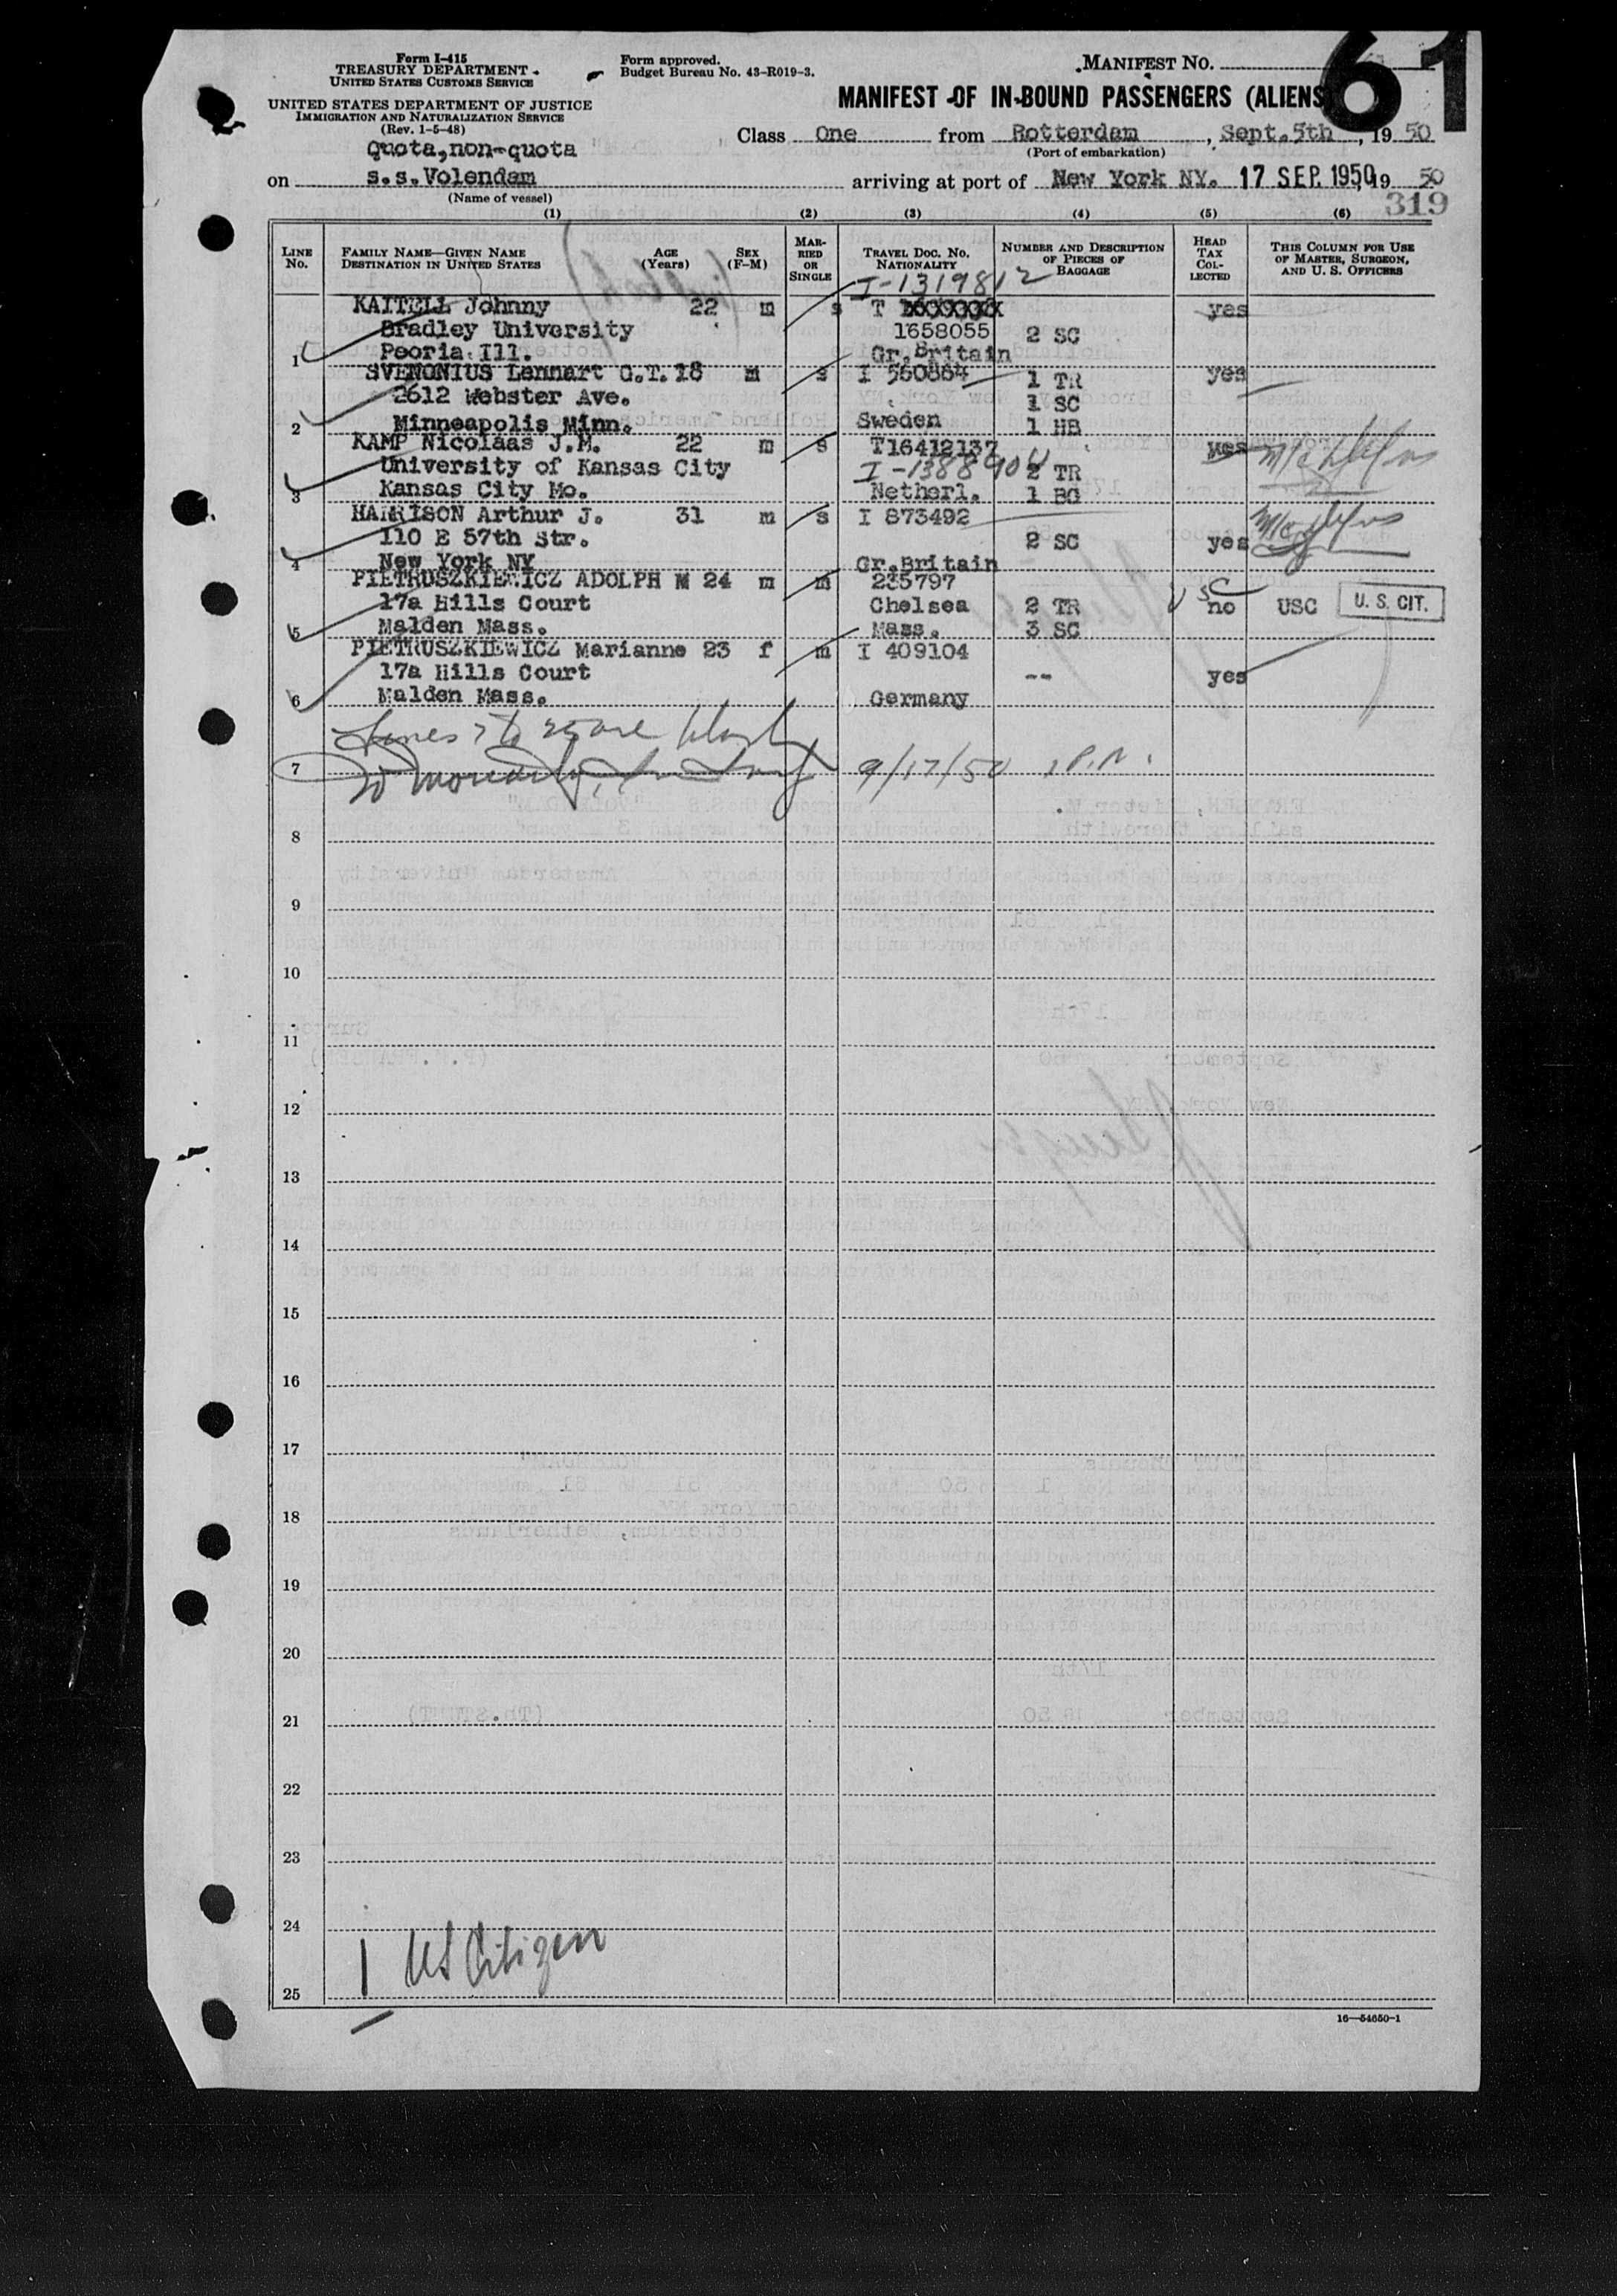 61
Form I-415
TREASURY DEPARTMENT
UNITED STATES CUSTOMS SERVICE
UNITED STATES DEPARTMENT OF JUSTICE
IMMIGRATION AND NATURALIZATION SERVICE
(Rev. 1-5-48)
Form approved.
Budget Bureau No. 43-R019-3.
MANIFEST NO.
MANIFEST OF IN-BOUND PASSENGERS (ALIENS)
Quota, non-quota
Class One from Rotterdam, Sept. 5th, 1950
(Port of embarkation)
on s.s. Volendam arriving at port of New York NY. 17 SEP. 1950, 19 50
(Name of vessel)
319
(1) (2) (3) (4) (5) (6)
LINE NO. FAMILY NAME—GIVEN NAME DESTINATION IN UNITED STATES AGE (Years) SEX (F-M) MARRIED OR SINGLE TRAVEL DOC. NO. NATIONALITY NUMBER AND DESCRIPTION OF PIECES OF BAGGAGE HEAD TAX COLLECTED THIS COLUMN FOR USE OF MASTER, SURGEON, AND U. S. OFFICERS
I-1319812
KAITELL Johnny 22 m s T yes
Bradley University 1658055 2 SC
1 Peoria Ill. Gr. Britain
SVENONIUS Lennart G.T. 18 m s I 560864 1 TR yes
2612 Webster Ave. 1 SC
2 Minneapolis Minn. Sweden 1 HB
KAMP Nicolaas J.M. 22 m s T16412137 yes
University of Kansas City I-1388904 2 TR
3 Kansas City Mo. Netherl. 1 BG
HARRISON Arthur J. 31 m s I 873492
110 E 57th Str. 2 SC yes
4 New York NY Gr. Britain
PIETRUSZKIEWICZ ADOLPH M 24 m m 235797 USC
17a Hills Court Chelsea 2 TR no USC U. S. CIT.
5 Malden Mass. Mass. 3 SC
PIETRUSZKIEWICZ Marianne 23 f m I 409104
17a Hills Court -- yes
6 Malden Mass. Germany
Lines 7 to 25 are blank
7 9/17/50
8
9
10
11
12
13
14
15
16
17
18
19
20
21
22
23
24
1 US Citizen
25
16—54650-1